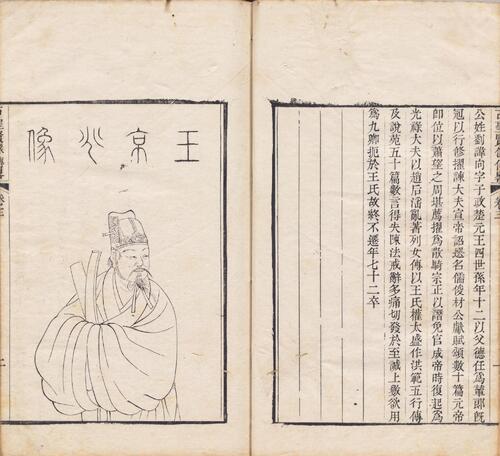 公姓劉諱向字子政楚元王四世孫年十二以父德任爲輦郎旣
冠以行修擢諫大夫宣帝詔選名儒俊材公獻賦頌數十篇元帝
卽位以蕭望之周堪薦擢爲散騎宗正以譖免官成帝時復起爲
光祿大夫以趙后淫亂著列女傳以王氏權太盛作洪範五行傳
及說苑五十篇數言得失陳法戒辭多痛切發於至誠上數欲用
爲九卿扼於王氏故終不遷年七十二卒
王京兆像